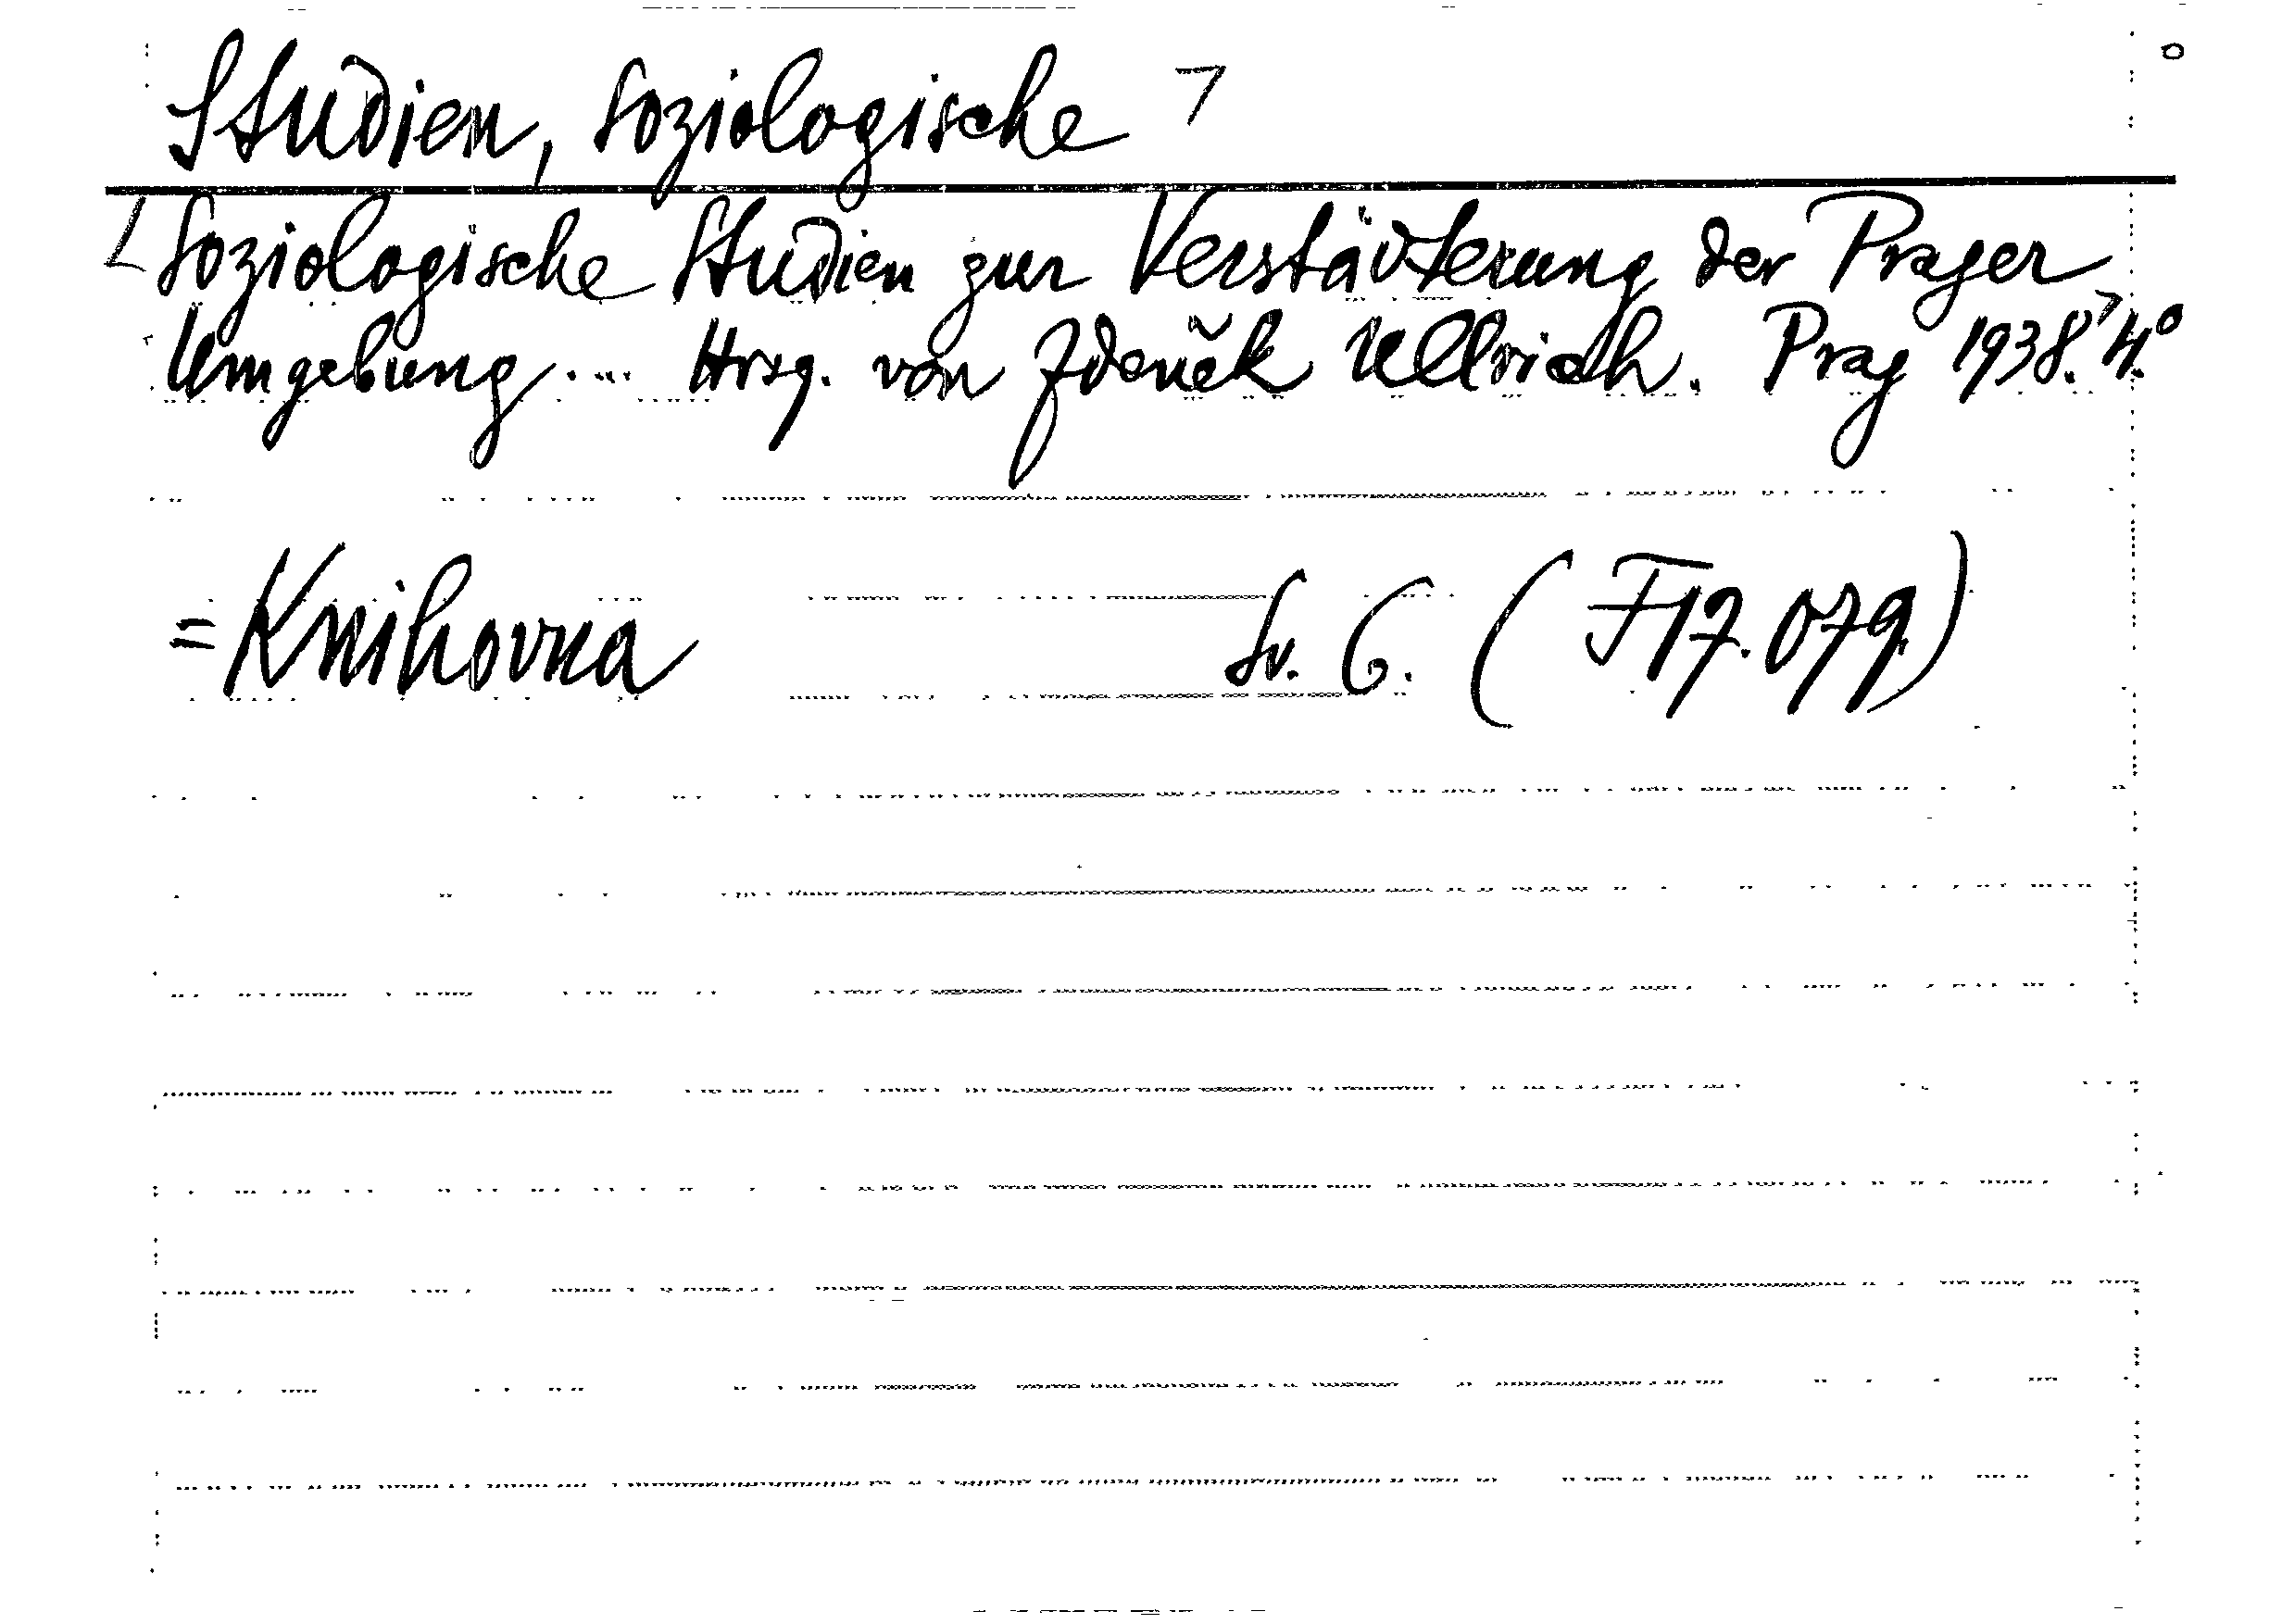 Studien, soziologische ⌝
⌊Soziologische Studien zur Verstädterung der Prager
Umgebung.... Hrsg. von Zdeněk Ullrich. Prag 1938.⌝ 4.°
=Knihovna Sv. 6. (F17.079)